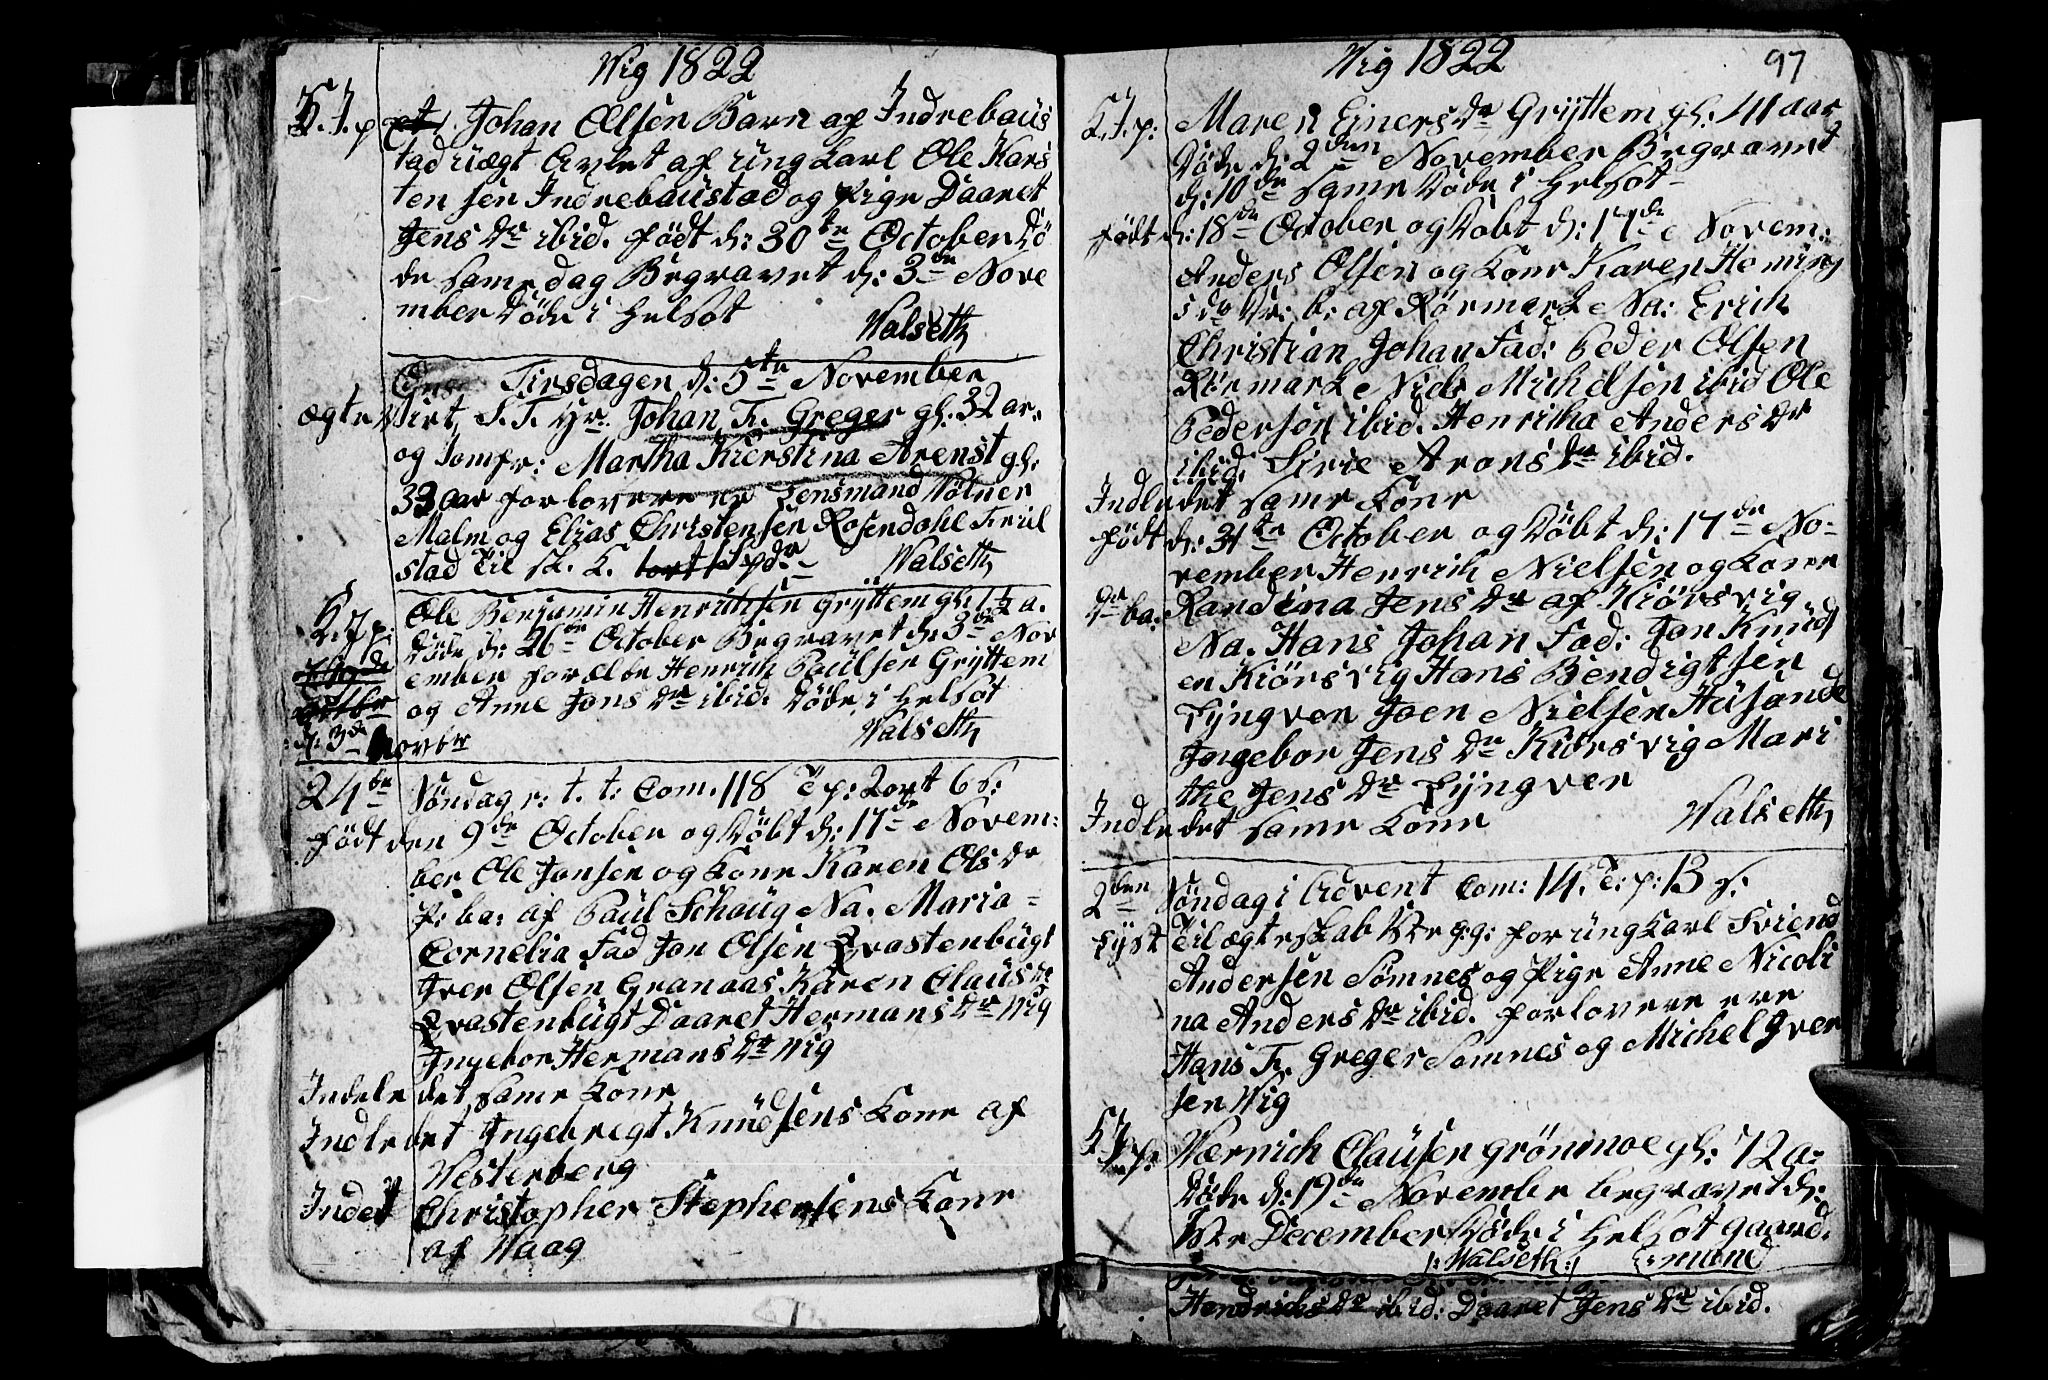 Wig 1822
K. J. p. Johan Olsen Barn af Indrebaus
tad uægt Avlet af ung karl Ole Kars
ten sen Indrebaustad og Pige Daaret
Jens dr ibid. født d: 30te October Dö
de same dag Begravet d: 3de Nove
mber Döde i helsot
Walseth
Tirsdagen d: 5te November
ægte Wiet S. T. Hr. Johan F. Greger gl: 32 ar.
og Jomfr: Martha Kierstina Arenst gl:
33 aar forlovere er Lensmand Völner
Malm og Elias Christensen Rosendahl Terül
stad Til sk. K. 1 Spdr
Walseth
K. J. p. Ole Benjamin Henrichsen Gryttem gl: 1½ a.
Döde d: 26de October Begravet d: 3de Nov
ember forældre Henrich Paulsen Gryttem
og Anne Jons dr ibid: Döde i helsot
d. 3de Novbr
Walseth
24de Söndag e: t. t: Com. 118 T p: 2 ort 6 s:
født den 9de October og Döbt d: 17de Novem:
ber Ole Jonsen og Kone Karen Ols dr
P: ba: af Paul Schaug Na. Maria
Cornelia Fad Jon Olsen Qvastenbugt
Iver Olsen Granaas Karen Claus dr
Qvastenbugt Daaret Hermans dr Wig
Ingebor Hermans dr Wig
Indele det same Kone
Indledet Ingebregt Knudsens Kone af
Westerberg
Indet Christopher Stephensens Kone
af Waag
Wig 1822
97
K. J. p: Maren Einers dr Gryttem gl: 41 aar
Döde d: 2den November Begravet
d: 10de same Döde i helsot
født d: 18de October og Döbt d: 17de Novem:
Anders Olsen og Kone Karen Heming
s dr Dr: b: af Rörmark Na: Erich
Christian Johan Fad: Peder Olsen
Rörmark Niels Michelsen ibid Ole
Pedersen ibid. Henricha Anders dr
ibid: Sirie Arons dr ibid.
Indledet same Kone
født d: 31te October og Döbt d: 17de No-
vember Henrich Nielsen og Kone
Dr ba: Randina Jens dr af Kiörsvig
Na. Hans Johan Fad: Jon Knuds
en Kiörsvig Hans Bendigtsen
Lyngver Joen Nielsen Husande
Ingebor Jens dr Kiörsvig Mari
the Jens dr Lyngver
Indledet same Kone
Walseth
2den Söndag i Advent Com: 14. T: p: 13 s.
Lyst Til ægteskab for ung karl Sviend
Andersen Sömnes og Pige Anne Nicoli
na Anders dr ibid. forlovere ere
Hans F. Greger Somnes og Michel Iver
sen Wig
K. J. p: Wærnich Clausen Grönmoe gl: 72 a.
Döde d: 19de November begravet d:
December Döde i helsot gaard
|: Walseth :| mand
Hendrichs dr ibid: Daaret Jens dr ibid.